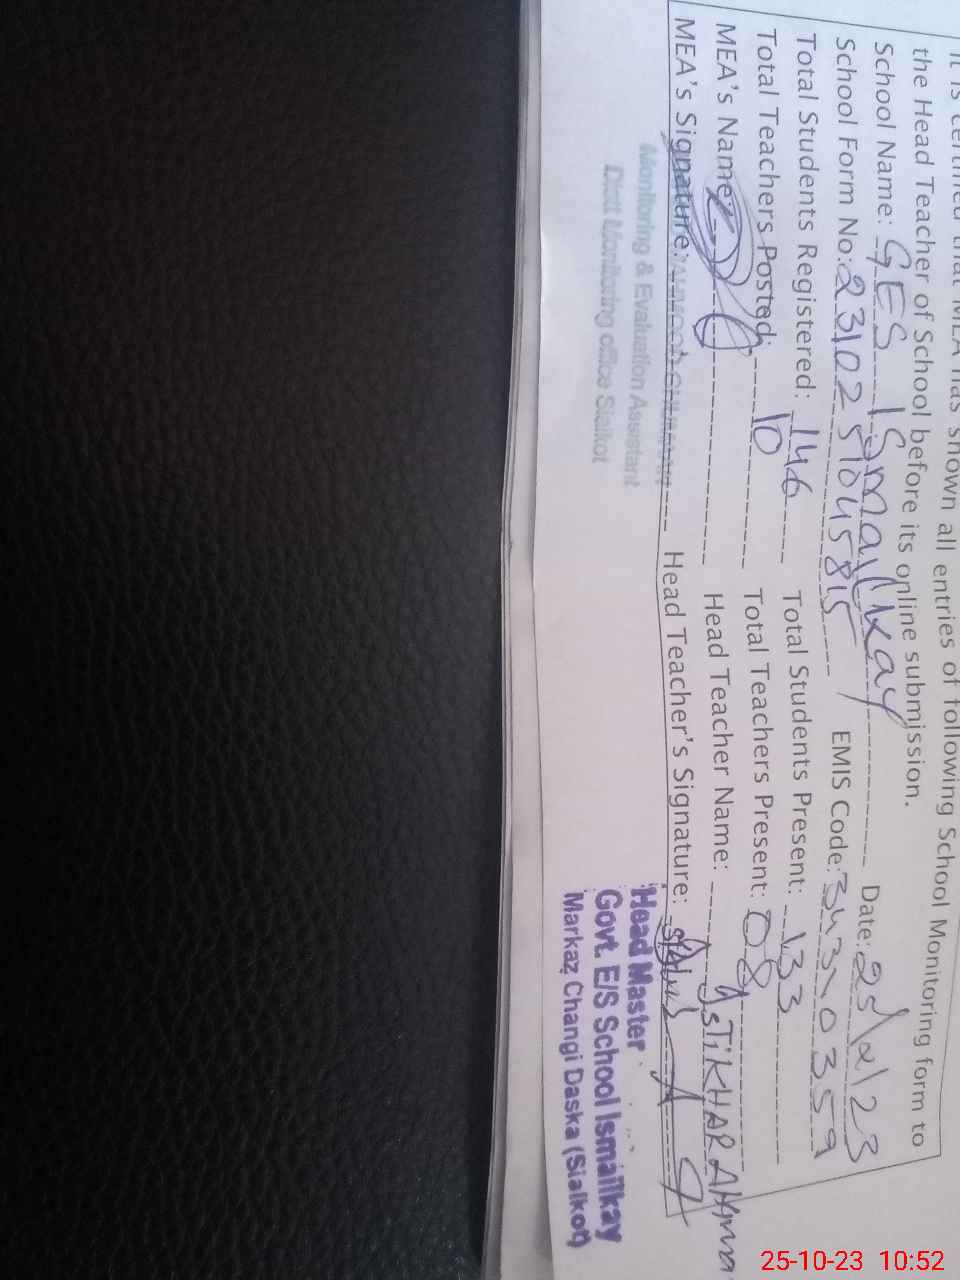 It is certified that MEA has shown all entries of following School Monitoring form to
the Head Teacher of School before its online submission.
School Name: GES Ismailkay Date: 25/ /23
School Form No: EMIS Code: 34310359
Total Students Registered: 146 Total Students Present: 133
Total Teachers Posted: 10 Total Teachers Present: 08
MEA's Name: Head Teacher Name: AHMA
MEA's Signature: Head Teacher's Signature:
Monitoring & Evaluation Assistant
Distt Monitoring office Sialkot
Head Master
Govt. E/S School Ismailkay
Markaz Changi Daska (Sialkot)
25-10-23 10:52